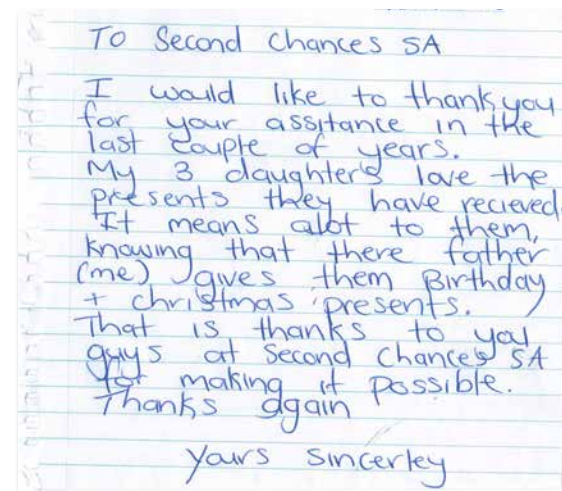 TO Second Chances SA
I would like to thankyou
for your assitance in the
last couple of years.
My 3 daughters love the
presents they have recieved.
It means alot to them,
knowing that there father
(me) gives them Birthday
+ christmas presents.
That is thanks to you
guys at Second Chances SA
for making it possible.
Thanks again
Yours sincerley